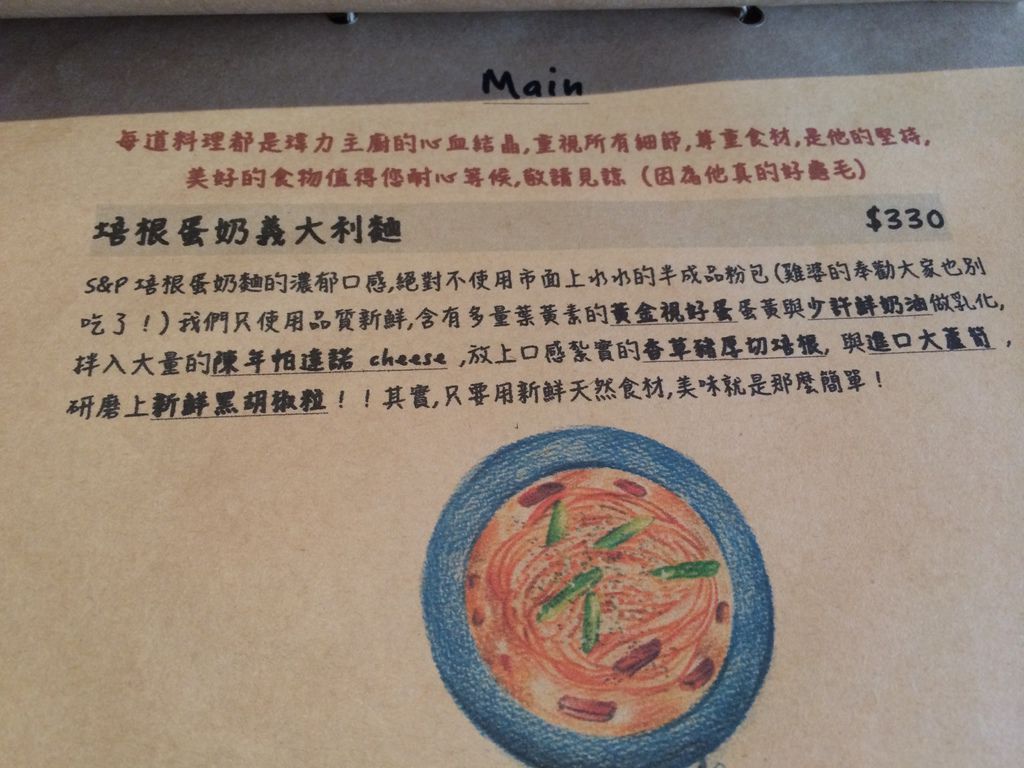 Main
每道料理都是瑋力主廚的心血結晶,重視所有細節,尊重食材,是他的堅持,
美好的食物值得您耐心等候,敬請見諒 (因為他真的好龜毛)
培根蛋奶義大利麵 $330
S&P 培根蛋奶麵的濃郁口感,絕對不使用市面上水水的半成品粉包(雞婆的奉勸大家也別
吃了!) 我們只使用品質新鮮,含有多量葉黃素的黃金視好蛋蛋黃與少許鮮奶油做乳化,
拌入大量的陳年帕達諾 cheese ,放上口感紮實的香草豬厚切培根, 與進口大蘆筍 ,
研磨上新鮮黑胡椒粒!!其實,只要用新鮮天然食材,美味就是那麼簡單!